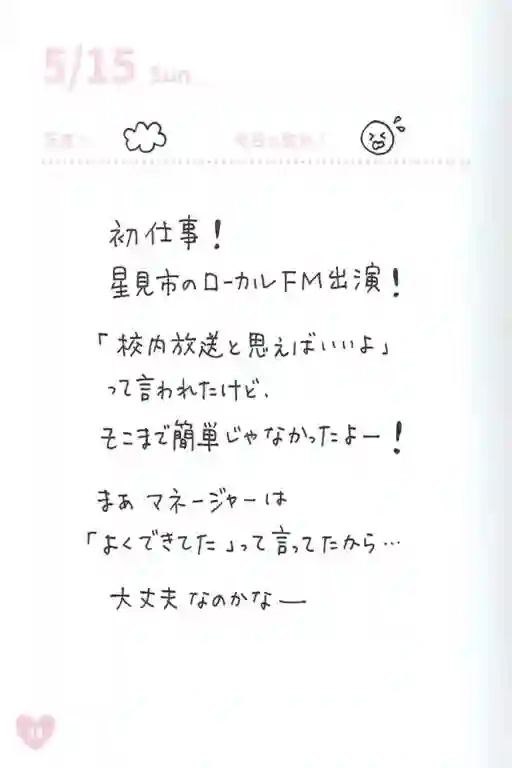 5/15 Sun
初仕事！
星見市のローカルFM出演！
「校内放送と思えばいいよ」
って言われたけど、
そこまで簡単じゃなかったよー！
まぁ マネージャーは
「よくできてた」って言ってたから…
大丈夫なのかなー